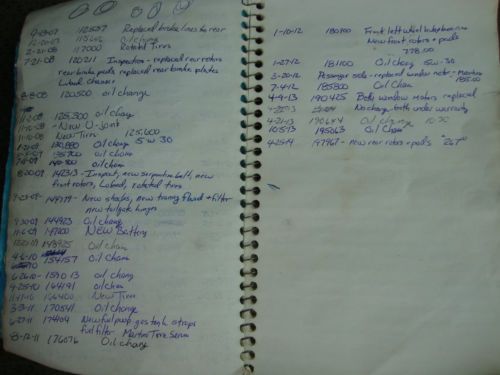 112637 Replaced brake lines to rear
115606 Oil change
2-21-08 117000 Rotated Tires
7-21-08 120211 Inspection - replaced rear rotors
rear brake pads, replaced rear brake plates
Lubed
8-8-08 120,500 oil change
11-2-08 125,300 oil chang
11-10-08 - New U-joint
New Tires 125,600
130,880 oil chang 5w30
135,700 oil chan
140,300 oil chan
8-20-09 142313 - Inspect, new serpentine belt, new
front rotors, Lubed, rotated tires
9-23-09 - 144179 - New shocks, new trany fluid + filter
new tailgate hinges
9-30-09 144923 Oil chang
11-6-09 147000 New Battery
148925 Oil chan
4-6-10 154157 oil chan
6-26-10 - 159013 oil chang
9-25-10 164191 oil chan
166400 New Tires
3-3-11 170541 Oil change
6-27-11 174404 New fuel pump, gas tank straps
fuel filter. Martins Tire Service
8-12-11 176076 Oil chang
1-10-12 180100 Front left wheel
New front rotors + pads
778.00
1-27-12 181100 Oil chang 5w-30
3-20-12 Passenger side - replaced window motor -
185.00
7-4-12 185800 Oil Chan
4-9-13 190425 Both window motors replaced
No charge, both under warranty
4-21-13 190644 Oil change
10-5-13 195063 Oil Chan
4-25-14 197967 - New rear rotors + pads "267"